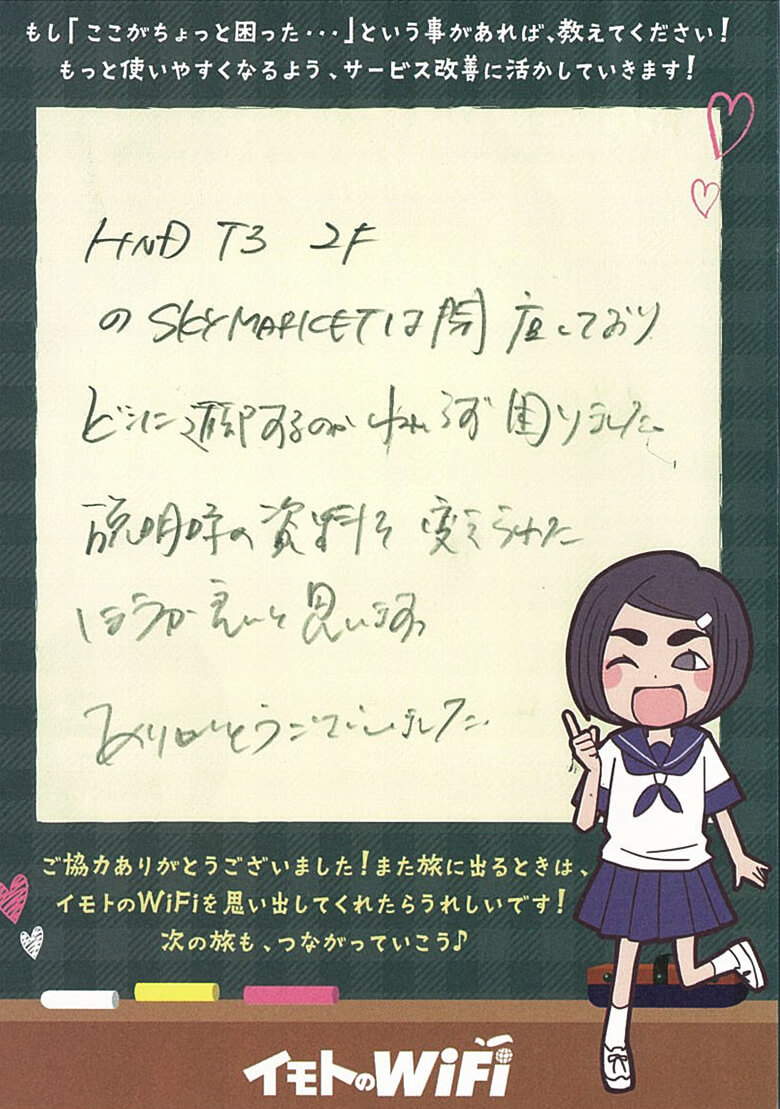 もし「ここがちょっと困った・・・」という事があれば、教えてください！
もっと使いやすくなるよう、サービス改善に活かしていきます！
HND T3 2F
のSKY MARKETは閉店しており
どこに返却するのかわからず困りました
説明時の資料を変えられた
ほうが良いと思います。
ありがとうございました。
ご協力ありがとうございました！また旅に出るときは、
イモトのWiFiを思い出してくれたらうれしいです！
次の旅も、つながっていこう♪
イモトのWiFi